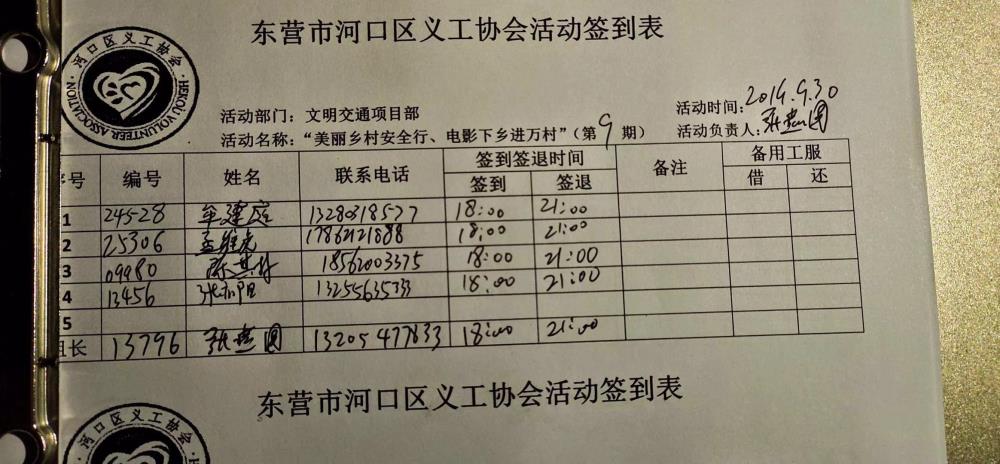 东营市河口区义工协会活动签到表
河口区义工协会
HEKOU VOLUNTEER ASSOCIATION
活动部门：文明交通项目部
活动时间：2014.9.30
活动名称：“美丽乡村安全行、电影下乡进万村”（第9期）
活动负责人：张燕圆
序号 编号 姓名 联系电话 签到签退时间 备注 备用工服
签到 签退 借 还
1 24528 13280318577 18:00 21:00
2 25306 17862121888 18:00 21:00
3 09980 18562003375 18:00 21:00
4 13456 13255635333 18:00 21:00
5
组长 13796 张燕圆 13205477833 18:00 21:00
东营市河口区义工协会活动签到表
河口区义工协会